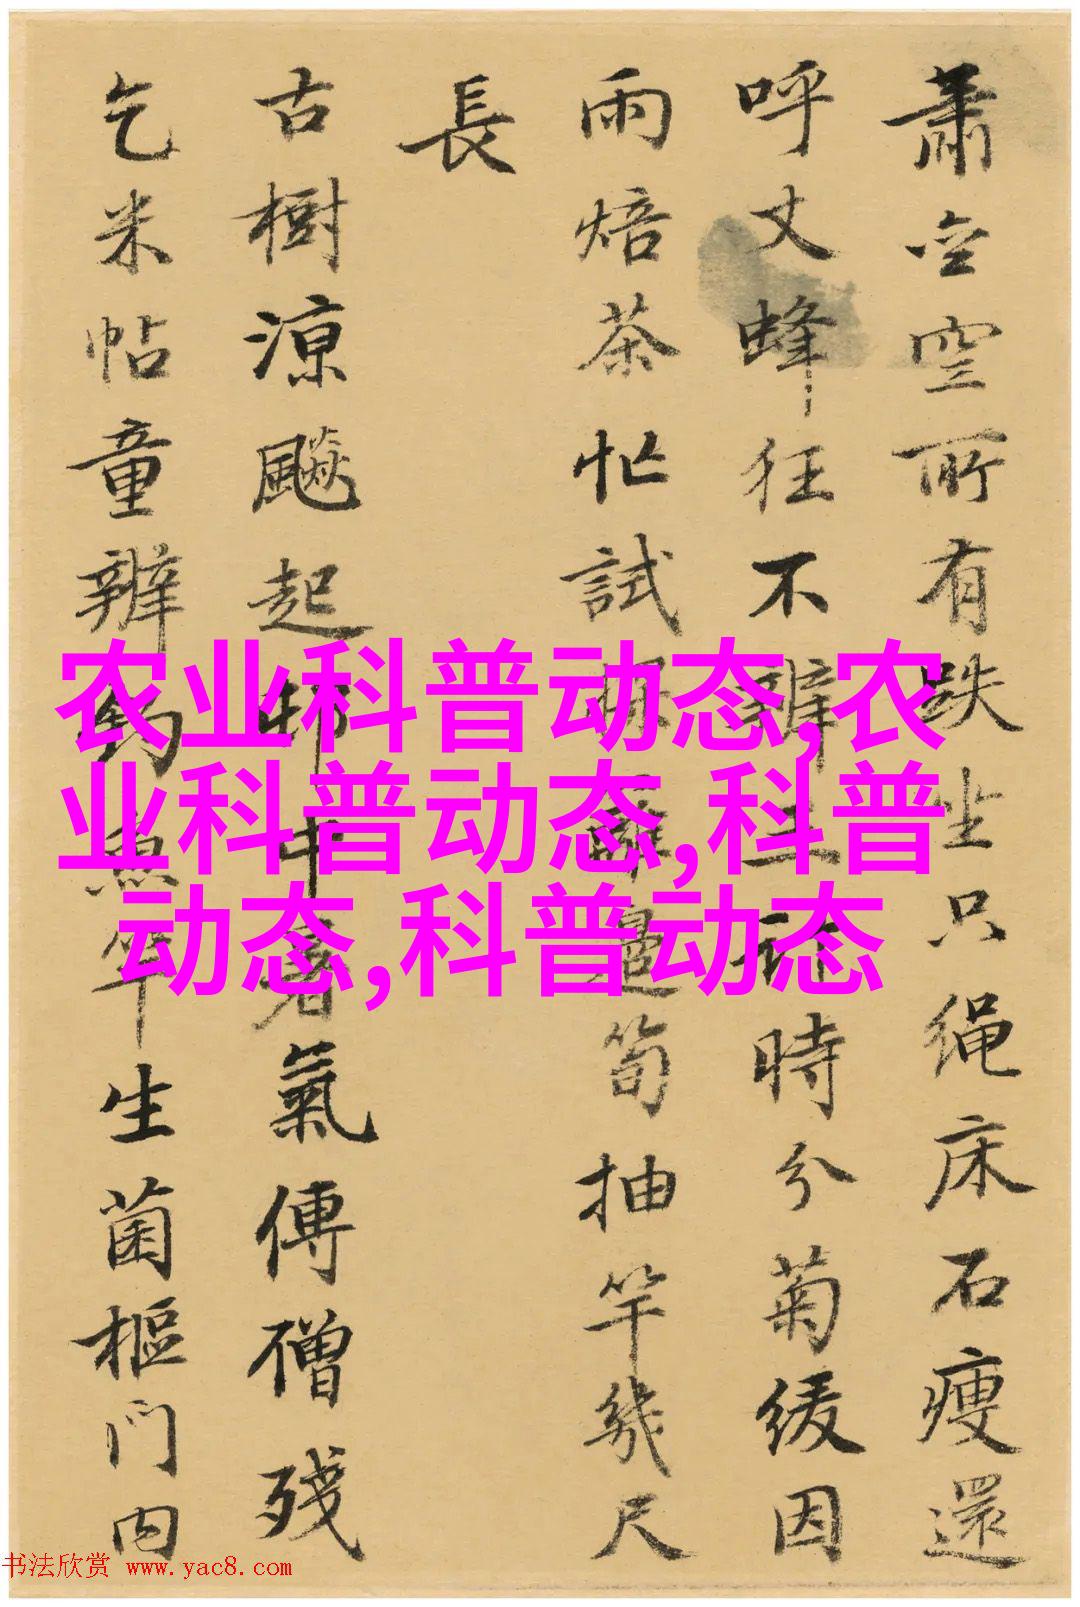 蕭空室所有趺坐只繩床石瘦還
呼丈蜂狂不辨王時分菊緩因
雨焙茶忙試筍抽竿幾尺
長
古樹涼飈起邨中暑氣傳僧殘
乞米帖童辨釣魚竿生菌樞門內
农业科普动态,农
业科普动态,科普
动态,科普动态
书法欣赏 www.yac8.com